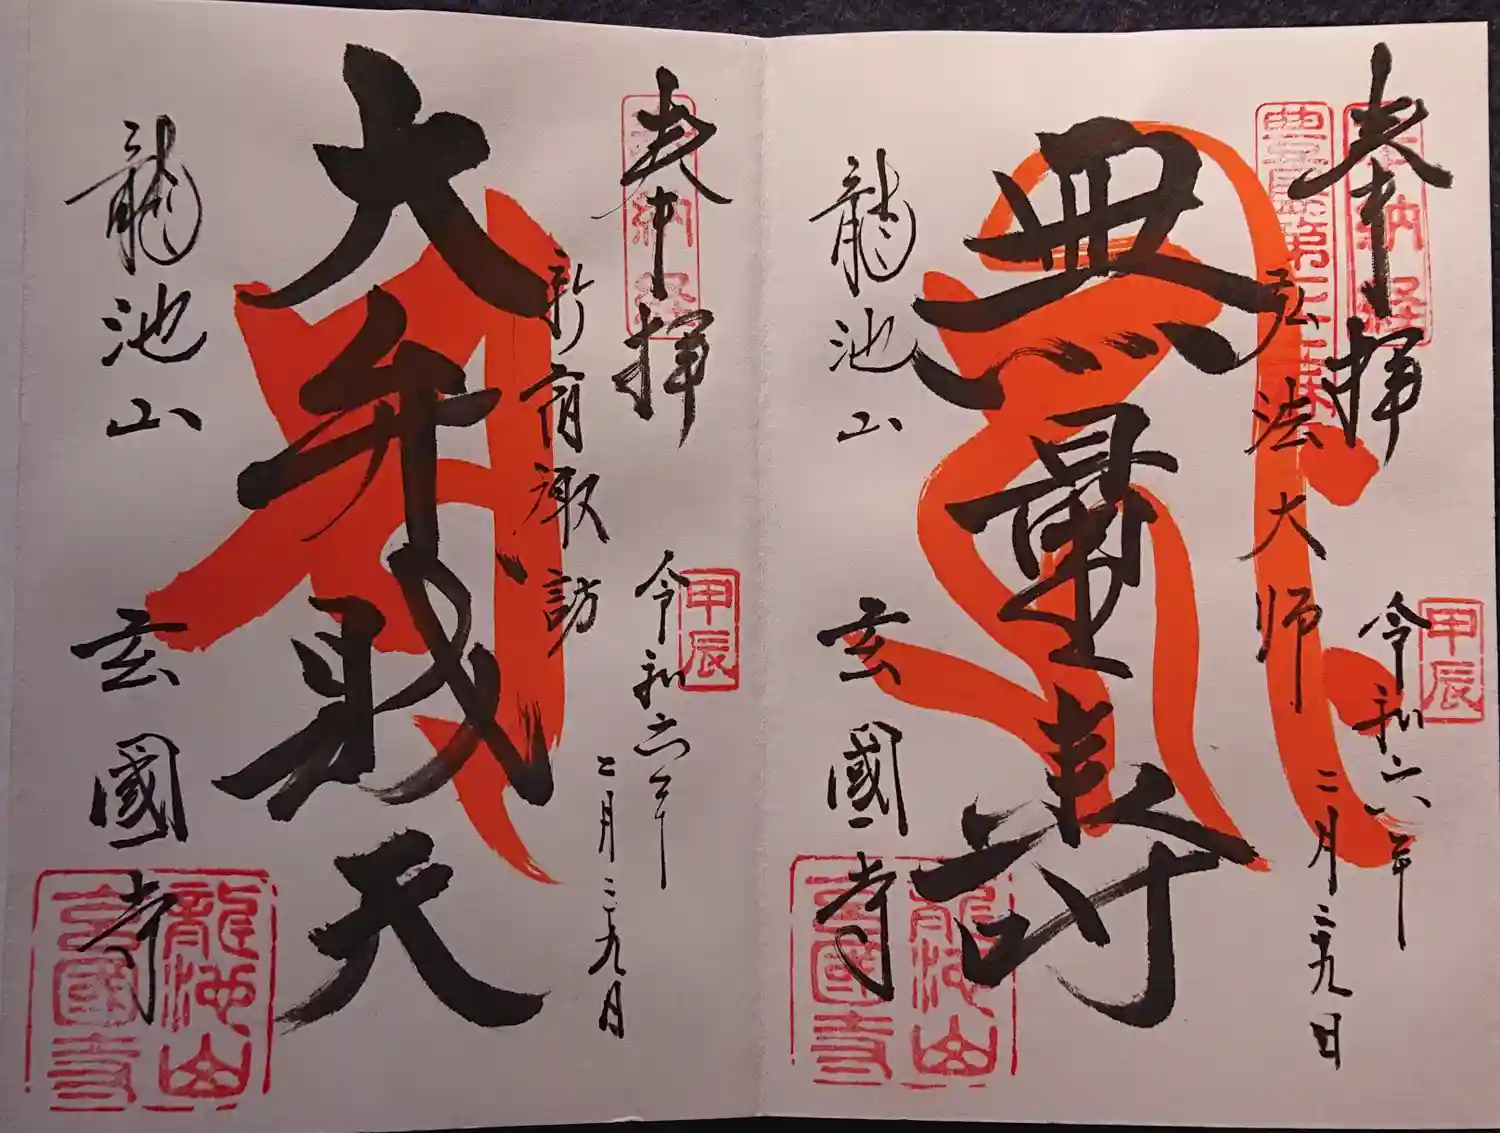 奉拝
奉納経
弘法大師
無量壽
令和六年
甲辰
二月二十九日
龍池山
玄國寺
龍池山
玄國寺
奉拝
奉納経
新宿諏訪
大弁財天
令和六年
甲辰
二月二十九日
龍池山
玄國寺
龍池山
玄國寺